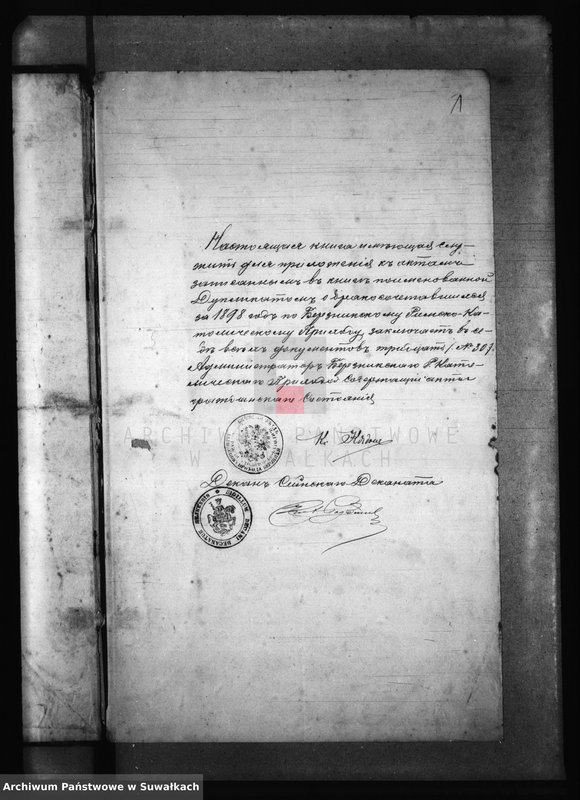 1
Настоящая книга имеющая слу-
жить для приложенія къ актамъ
записаннымъ въ книгѣ поименованной
Дупликатомъ о бракосочетавшихся
за 1898 годъ по Березникскому Римско-Ка-
толическому Приходу, заключаетъ въ се-
бѣ всѣхъ документовъ тридцать / № 30 /.
Администраторъ Березникскаго Р. Като-
лическаго Прихода содержащій акты
гражданскаго состоянія
К.
ARCHIWUM PAŃSTWOWE
W SUWAŁKACH
Деканъ Сейнскаго Деканата
SIGILLUM DECANATUS
Archiwum Państwowe w Suwałkach